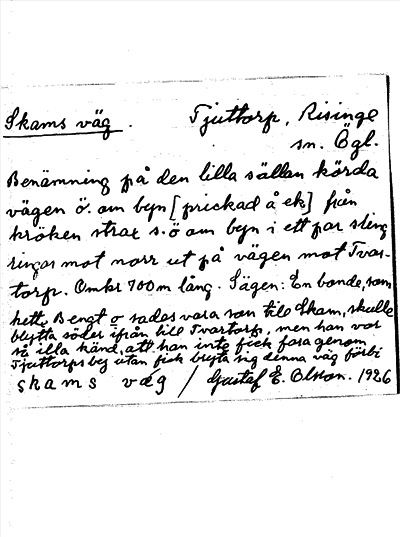 Skams väg. Tjuttorp, Risinge
sn. Ögl.
Benämning på den lilla sällan körda
vägen ö. om byn [prickad å ek] från
kröken strax s.ö om byn i ett par sling
ringar mot norr ut på vägen mot Tvar-
torp. Omkr 700 m lång. Sägen: En bonde, som
hett Bengt o sades vara son till Skam, skulle
flytta söder ifrån till Tvartorp, men han var
så illa känd, att han inte fick fara genom
Tjuttorps by utan fick bryta sig denna väg förbi
skams väg / Gustaf E. Olsson. 1926